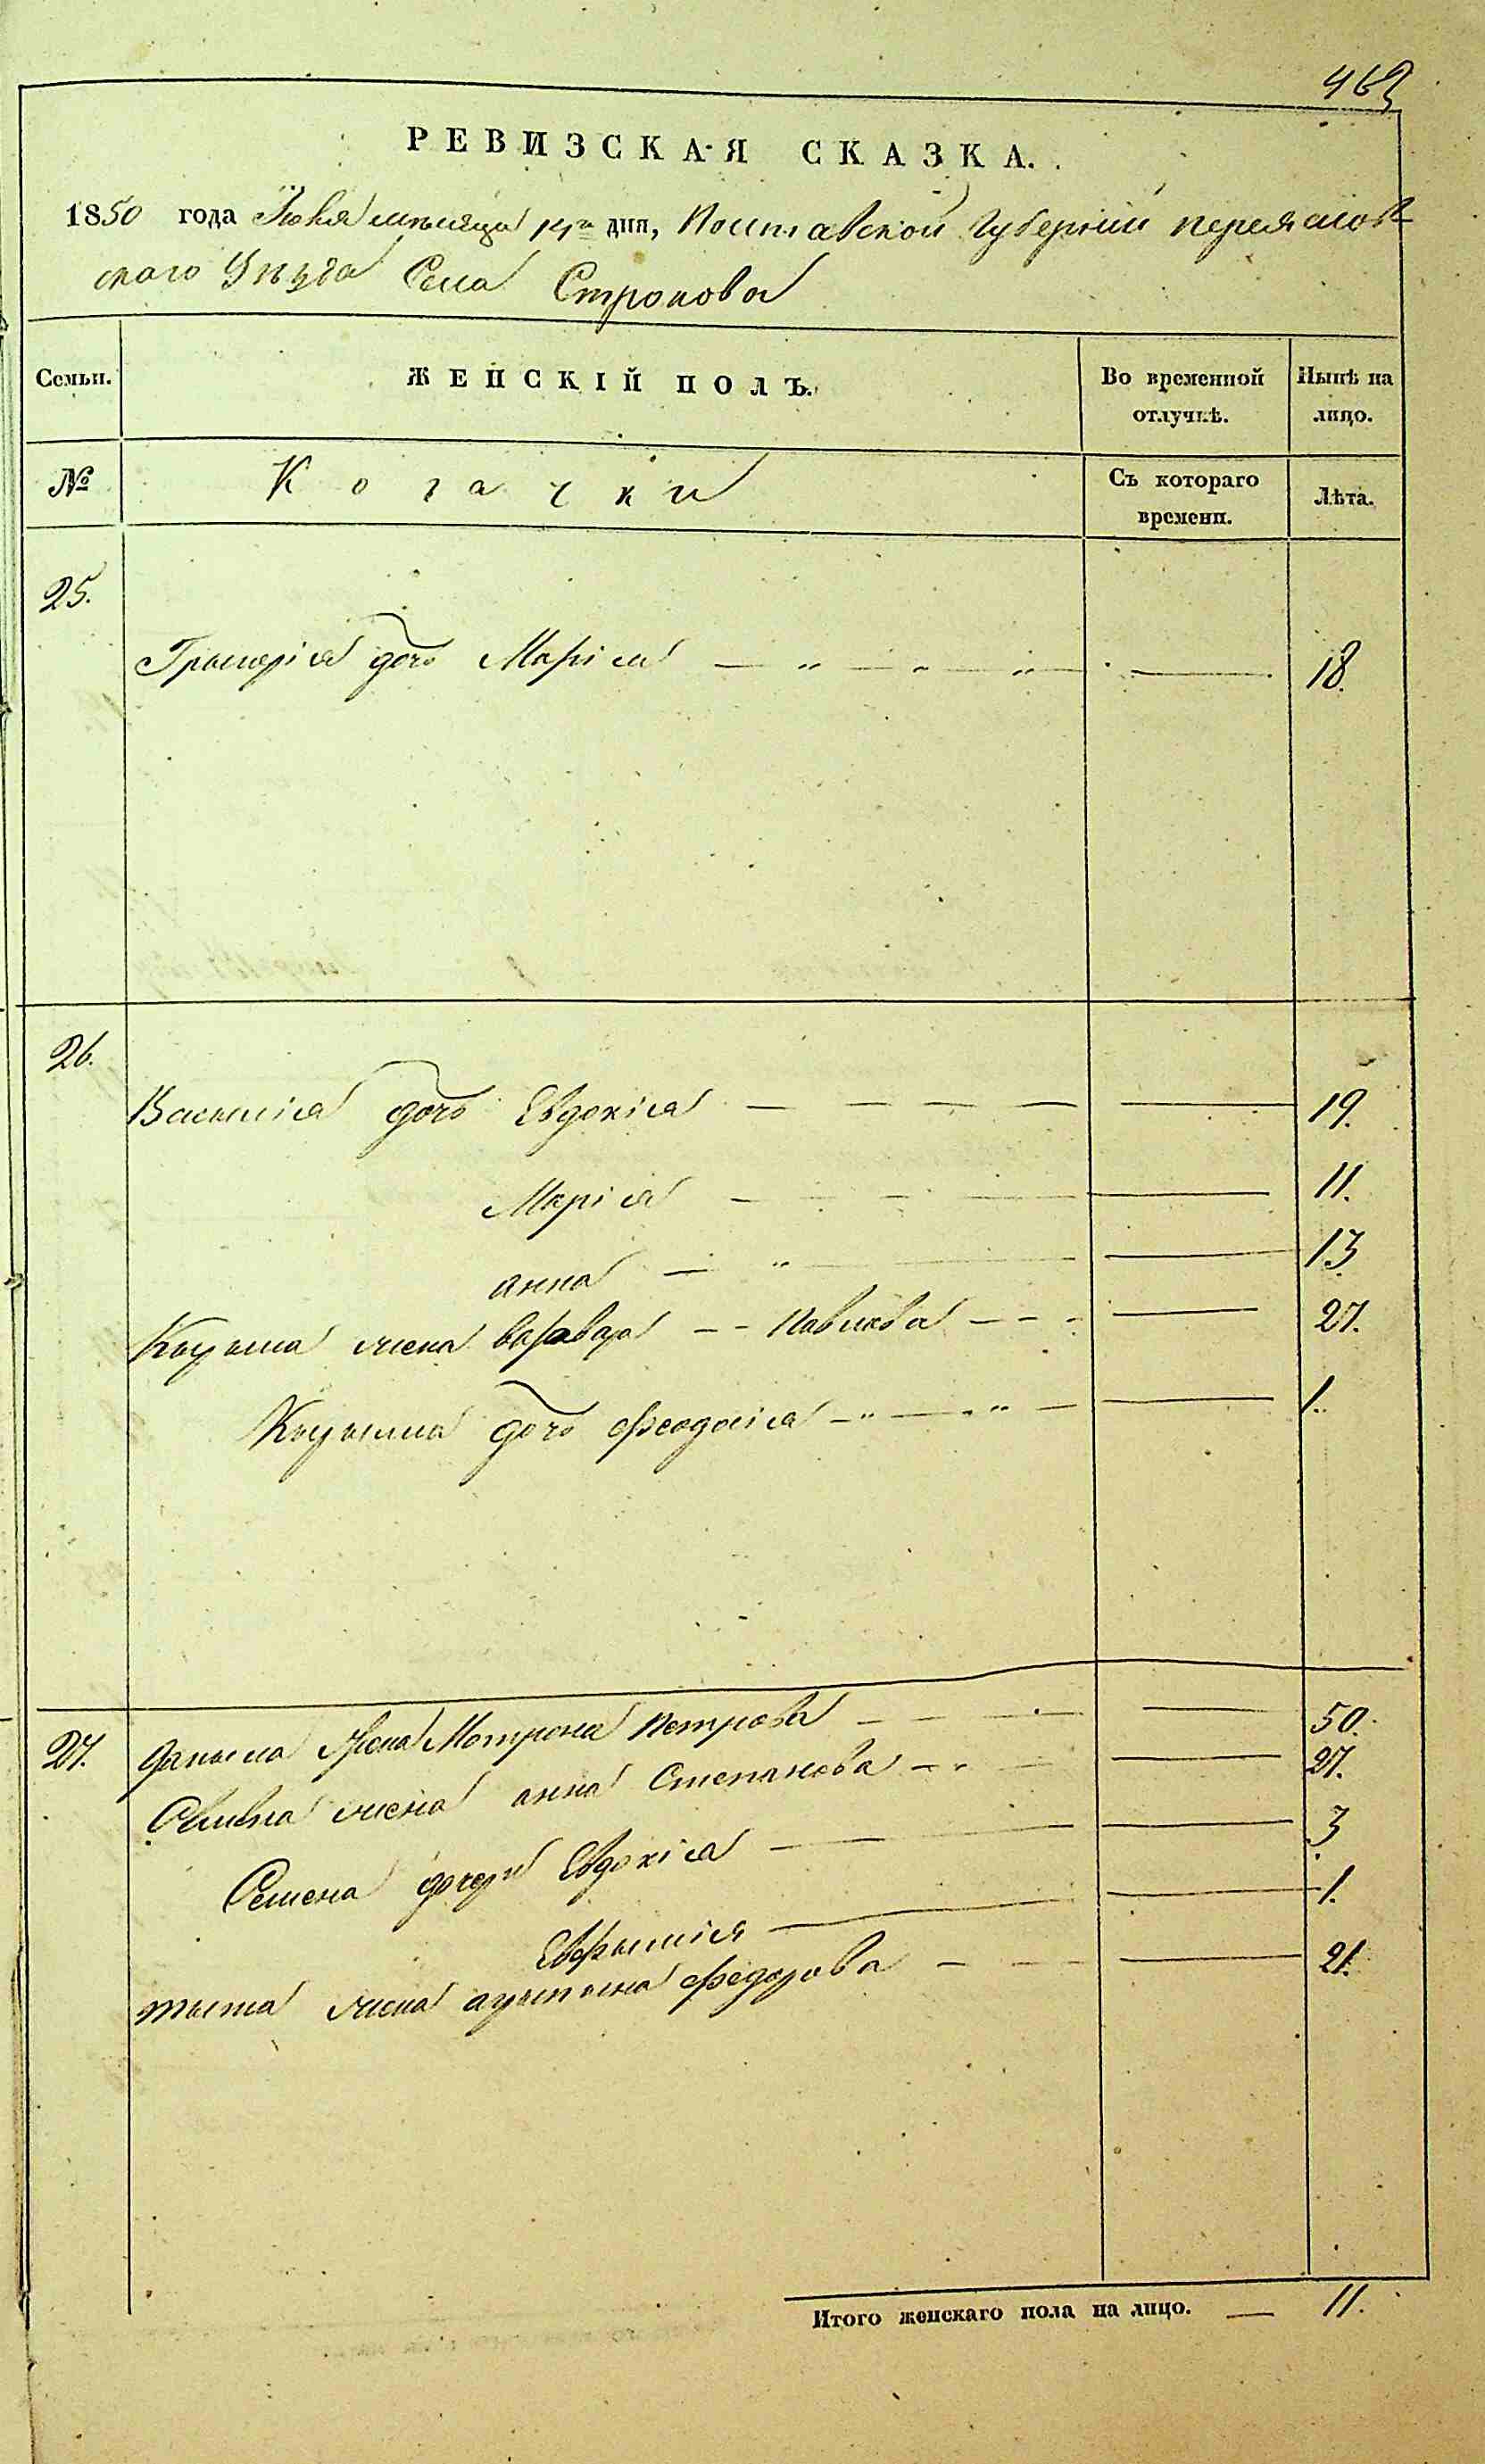 463
РЕВИЗСКАЯ СКАЗКА.
1850 года Июня месяца 14го дня, Полтавской Губернии переяслов
скаго Уезда Села Строкова
Семьи. ЖЕНСКІЙ ПОЛЪ. Во временной отлучкѣ. Ныпѣ на лицо.
№ Козачки Съ котораго времени. Лѣта.
25.
Григорія дочь Марія 18.
26.
Василія дочь Евдокія 19.
Марія 11.
анна 13
Кирила жена варвара Павлова 27.
Кирила дочь Феодосія 1.
27. данила Жена Мотрона Петрова 50.
жена анна Степанова 27.
Семена дочери Евдокія 3
1.
тита жена Федорова 21.
Итого женскаго пола на лицо. 11.